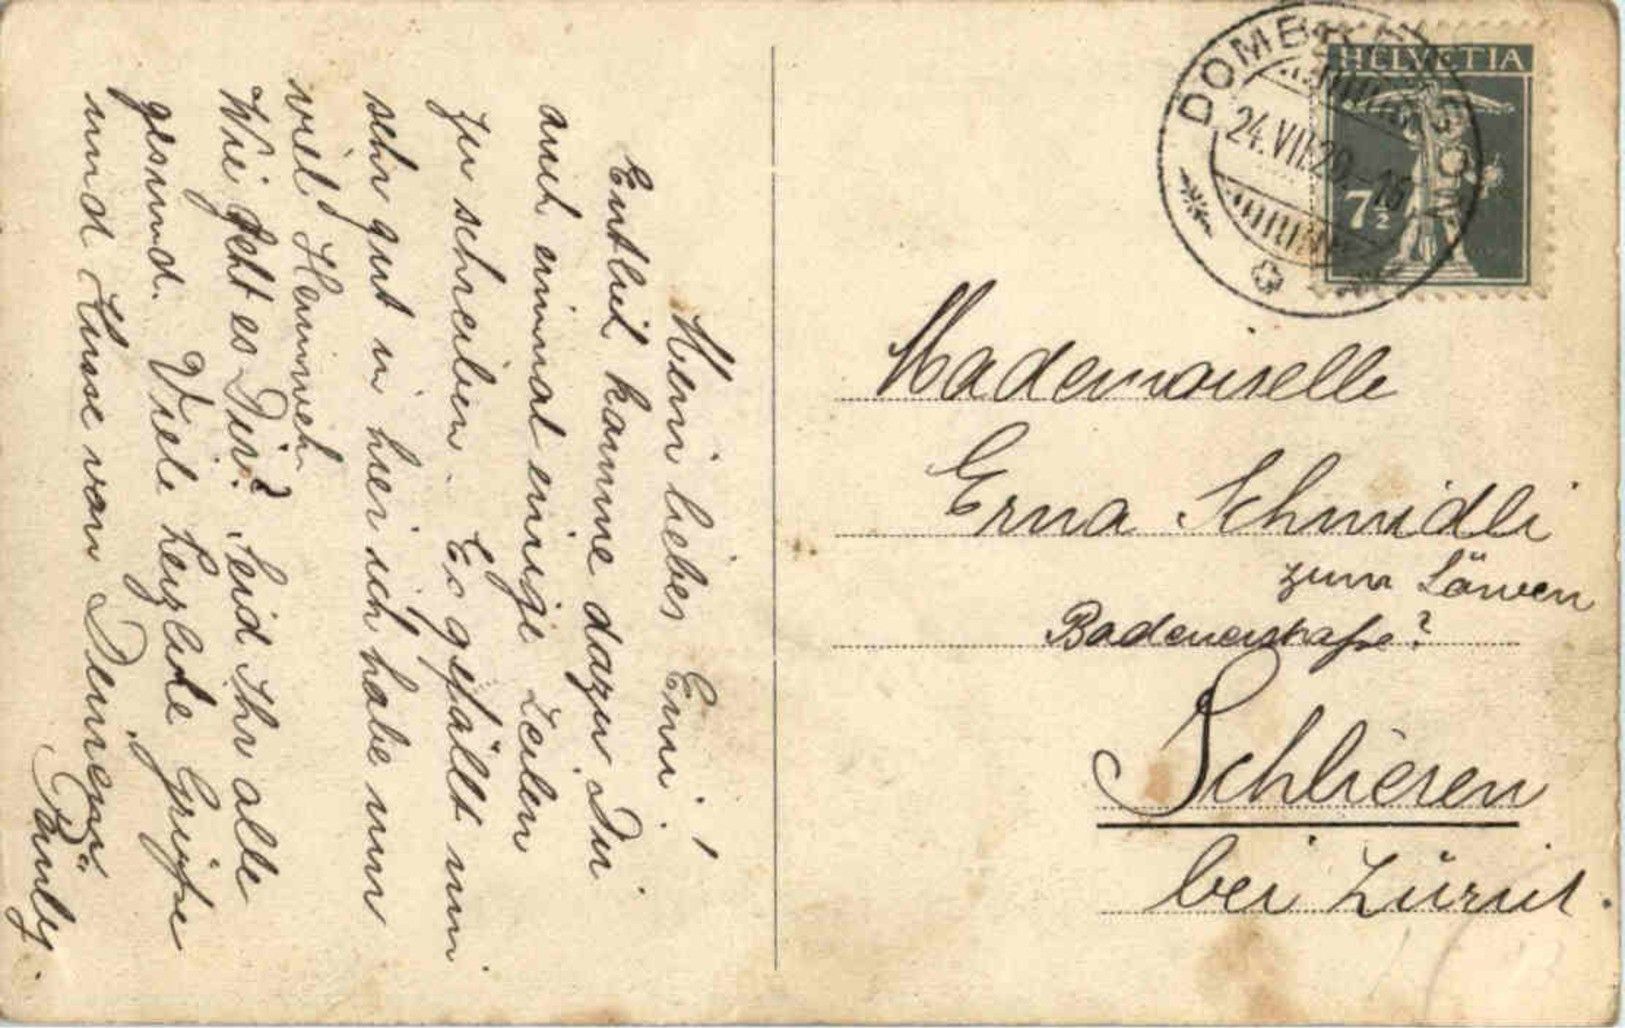 Mein liebes Erni!
Entlich kamme dazu Dir
auch einmal einige Zeilen
zu schreiben. Es gefällt mir
sehr gut in hier ich habe nur
viel Heimweh
Wie geht es Dir? Seid Ihr alle
gesund. Viele herzliche Grüsse
und Küsse von Deinem
HELVETIA
7½
24.VII.29.-16
Mademoiselle
Erna Schmidli
zum Löwen
Badenerstraße?
Schlieren
bei Zürich.